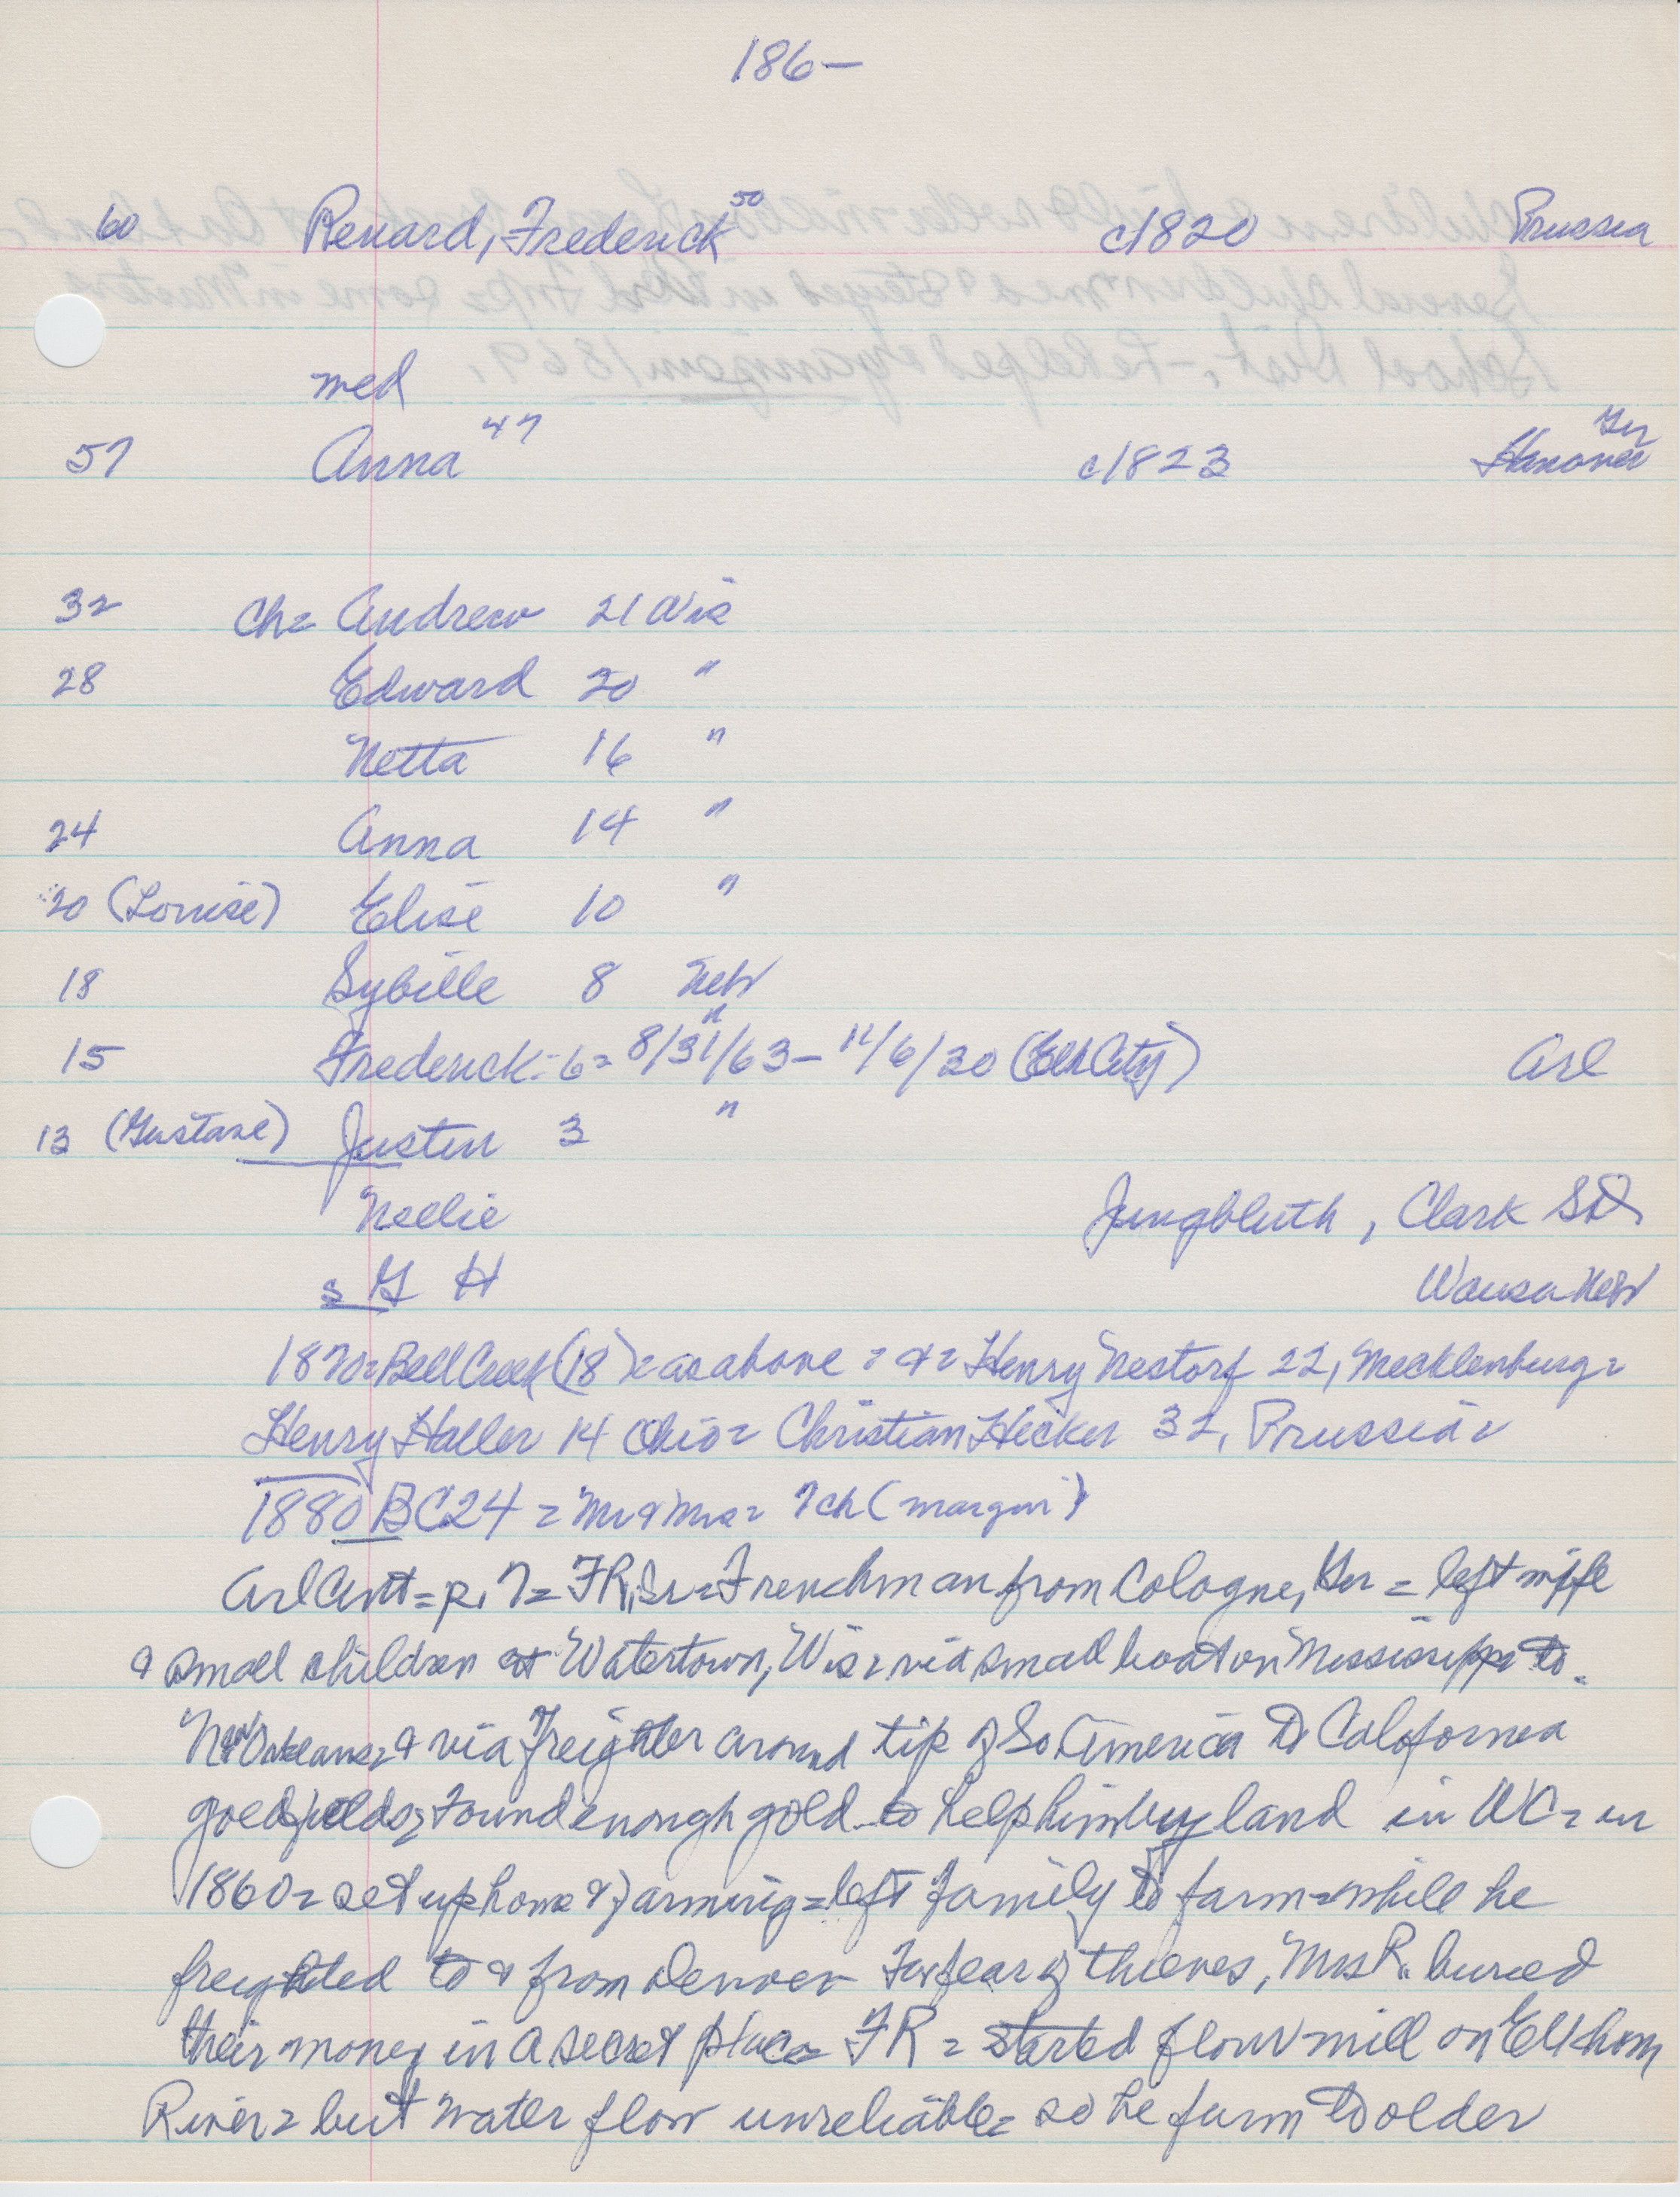 186—
60 Renard, Frederick 50 c1820 Prussia
med
57 Anna 47 c1823 Hanover Ger
32 Ch= Andrew 21 Wis
28 Edward 20 "
Netta 16 "
24 Anna 14 "
20 (Louise) Elise 10 "
18 Sybille 8 Neb
15 Frederick - 6 = 8/31/63 – 11/6/30 (Elk City) " Arl
13 (Gustave) Justin 3 "
Nellie Jungbluth, Clark SD
s G H Wausa Neb
1870= Bell Creek (18) = as above = &= Henry Nestorf 22, Mecklenburg=
Henry Haller 14 Ohio= Christian Hecker 32, Prussia=
1880 BC24 = Mr & Mrs= 7ch (margin)
Arl Cent= p. 7= FR, Sr= Frenchman from Cologne, Ger = left wife
& small children at Watertown, Wis= via small boat on Mississippi to
New Orleans= & via freighter around tip of So. America to California
goldfields= Found enough gold to help him buy land in WC= in
1860= set up home & farming= left family to farm= while he
freighted to & from Denver For fear of thieves, Mrs R. buried
their money in a secret place= FR = started flour mill on Elkhorn
River= but water flow unreliable= so he farm to older